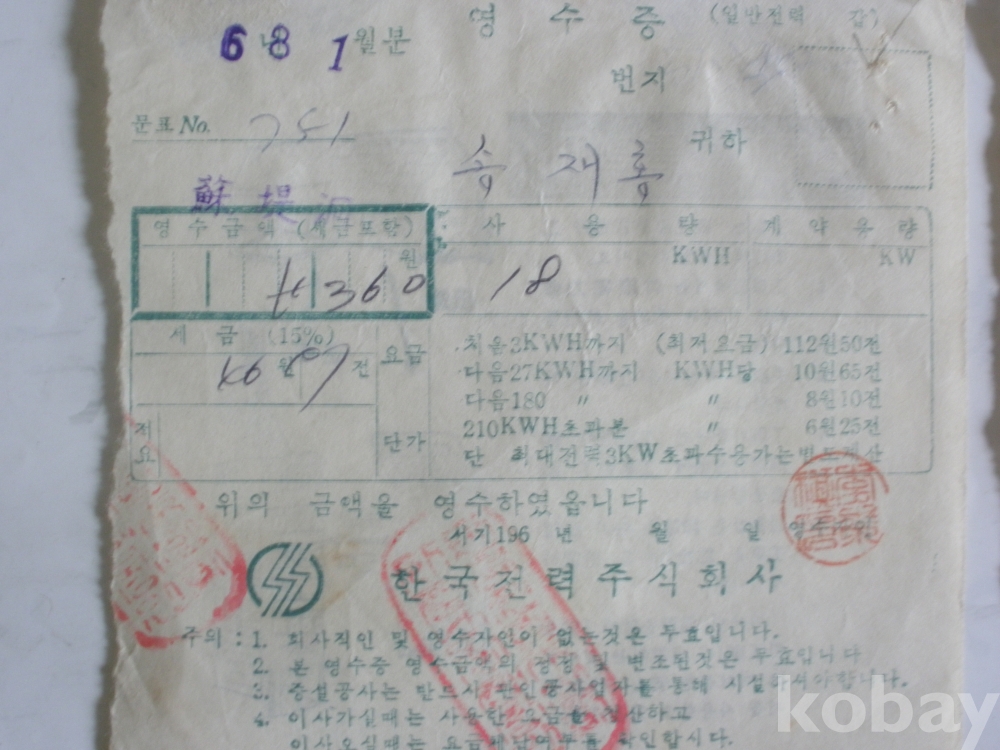 영 수 증 (일반전력 갑)
68 년 1 월분
번지
문표 No. 751
송 재 홍 귀하
蘇 堤
영수금액 (세금포함) 사 용 량 계 약 용 량
원 KWH KW
₩360 18
세 금 (15%)
원 전 요금 처음3KWH까지 (최저요금) 112원50전
다음27KWH까지 KWH당 10원65전
다음180 〃 〃 8원10전
적요 단가 210KWH초과분 〃 6원25전
단 최대전력3KW초과수용가는별도계산
위의 금액을 영수하였읍니다
서기196 년 월 일
한국전력주식회사
주의 : 1. 회사직인 및 영수자인이 없는것은 무효입니다.
2. 본 영수증 영수금액의 정정 및 변조된것은 무효입니다
3. 증설공사는 반드시 공사업자를 통해 시설하셔야합니다.
4. 이사가실때는 사용한 요금을 청산하고
이사오실때는 요금체납여부를 확인합시다.
kobay